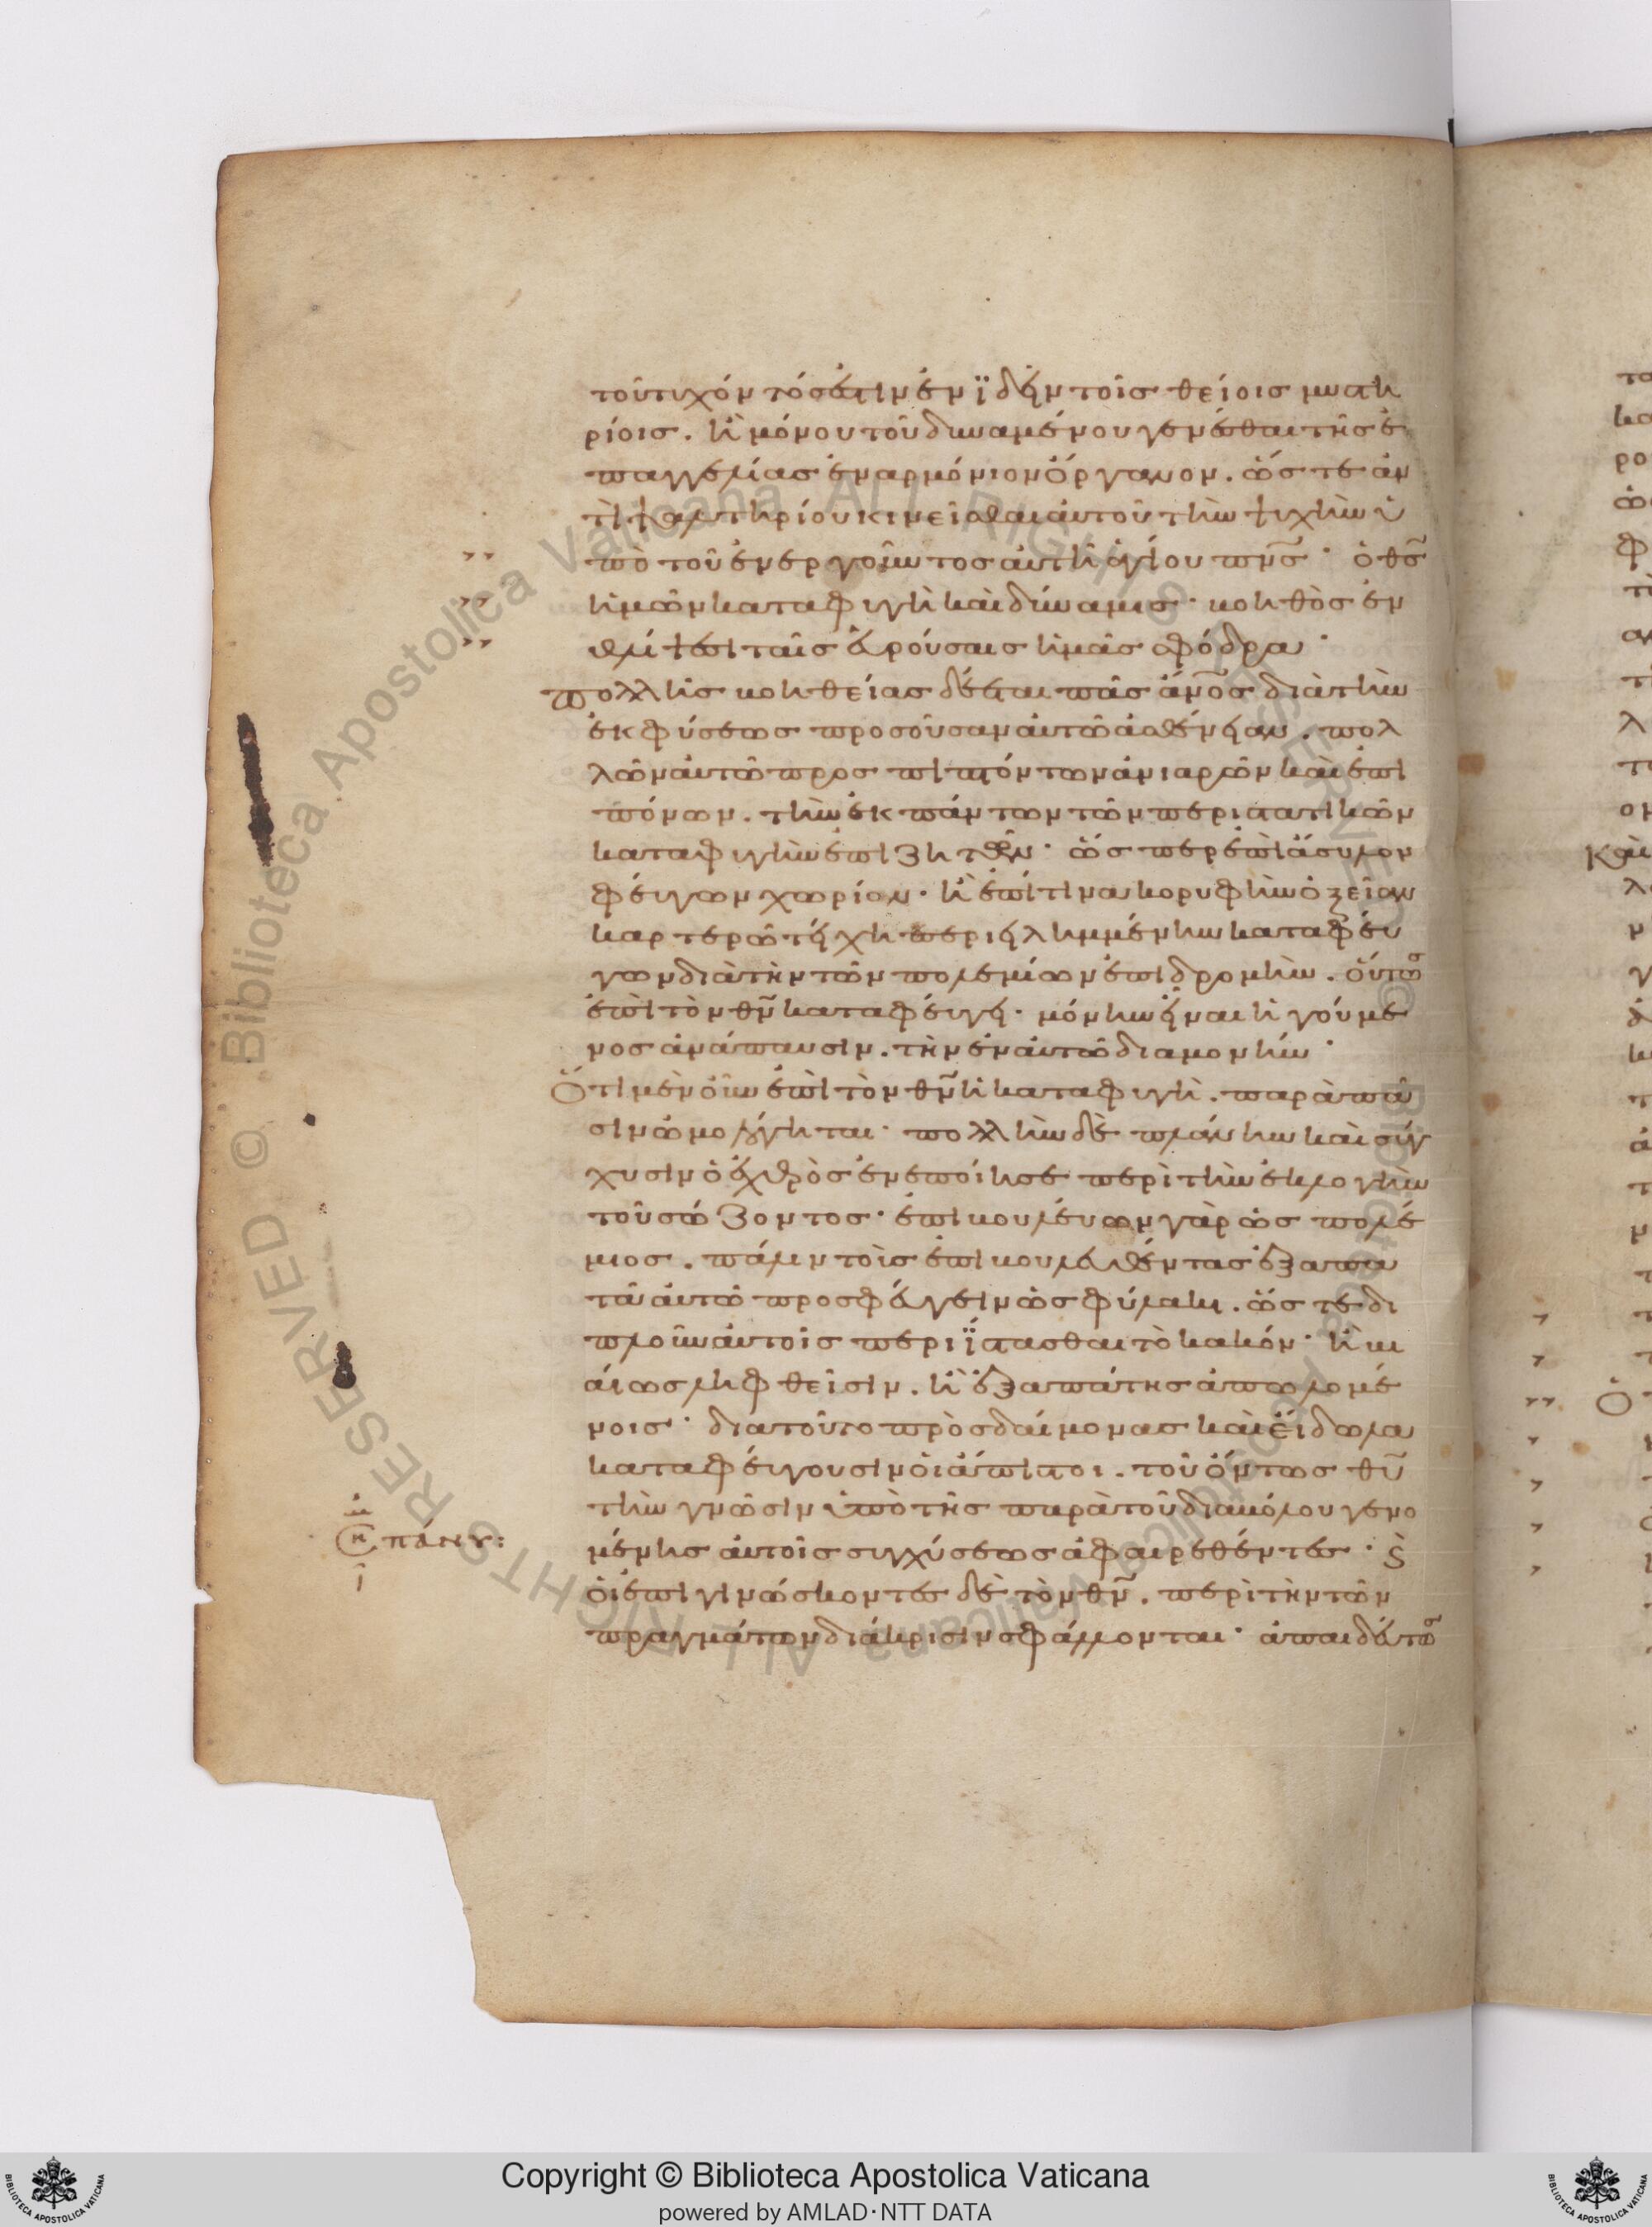 τοῦ τυχόντός ἐστιν ἐνϊδεῖν τοῖς θείοις μυστη
ρίοις. ἢ μόνου τοῦ δυναμένου γενέσθαι τῆς ἐ
παγγελίας ἐναρμόνιον ὄργανον. ὥς τε ἀν
τὶ ψαλτηρίου κινεῖσθαι αὐτοῦ τὴν ψυχὴν ὑ
πὸ τοῦ ἐνεργοῦντος αὐτῆ ἁγίου πνς· ὁ θς
ἡμῶν καταφυγὴ καὶ δύναμις· βοηθὸς ἐν
θλίψεσι ταῖς εὑρούσαις ἡμᾶς σφόδρα·
πολλῆς βοηθείας δέεται πᾶς ἄνος διὰ τὴν
ἐκ φύσεως προσοῦσαν αὐτῶ ἀσθένειαν. πολ
λῶν αὐτῶ προς πιπτόντων ἀνιαρῶν καὶ ἐπι
πόνων. τὴν ἐκ πάντων τῶν περιστατικῶν
καταφυγὴν ἐπιζητῶν· ὥς περ ἐπὶ ἄσυλον
φεύγων χωρίον· ἢ ἐπί τινα κορυφὴν ὀξεῖαν
καρτερῶ τείχη περιειλημμένην καταφεύ
γων διὰ τὴν τῶν πολεμίων ἐπιδρομὴν. οὕτως
ἐπὶ τὸν θν καταφεύγει· μόνην εἶναι ἡγούμε
νος ἀνάπαυσιν. τὴν ἐν αὐτῶ διαμονήν·
Ὅτι μὲν οὖν ἐπὶ τὸν θν ἡ καταφυγὴ. παρὰ πᾶ
σιν ὡμολόγηται· πολλὴν δὲ πλάνην καὶ σύγ
χυσιν ὁ ἐχθρὸς ἐνεποίησε περὶ τὴν ἐκλογὴν
τοῦ σώζοντος· ἐπιβουλεύων γὰρ ὡς πολέ
μιος. πάλιν τοῖς ἐπιβουλευθέντας ἐξαπα
τᾶ αὐτῶ προσφεύγειν ὡς φύλακι. ὥς τε δι
πλοῦν αὐτοῖς περιΐστασθαι τὸ κακόν· ἢ βι
αίως ληφθεῖσιν. ἢ ἐξαπάτης ἀπολομέ
νοις· διατοῦτο πρὸς δαίμονας καὶ εἴδωλα
καταφεύγουσιν οἱ ἄπιστοι. τοῦ ὄντως θυ
τὴν γνῶσιν ὑπὸ τῆς παρὰ τοῦ διαβόλου γενο
μένης αὐτοῖς συγχύσεως ἀφαιρεθέντες· ϛ
οἱ ἐπιγινώσκοντες δὲ τὸν θν. περὶ τὴν τῶν
πραγμάτων διάκρισιν σφάλλονται· ἀπαιδεύτως
πάνυ:
Copyright © Biblioteca Apostolica Vaticana
powered by AMLAD·NTT DATA